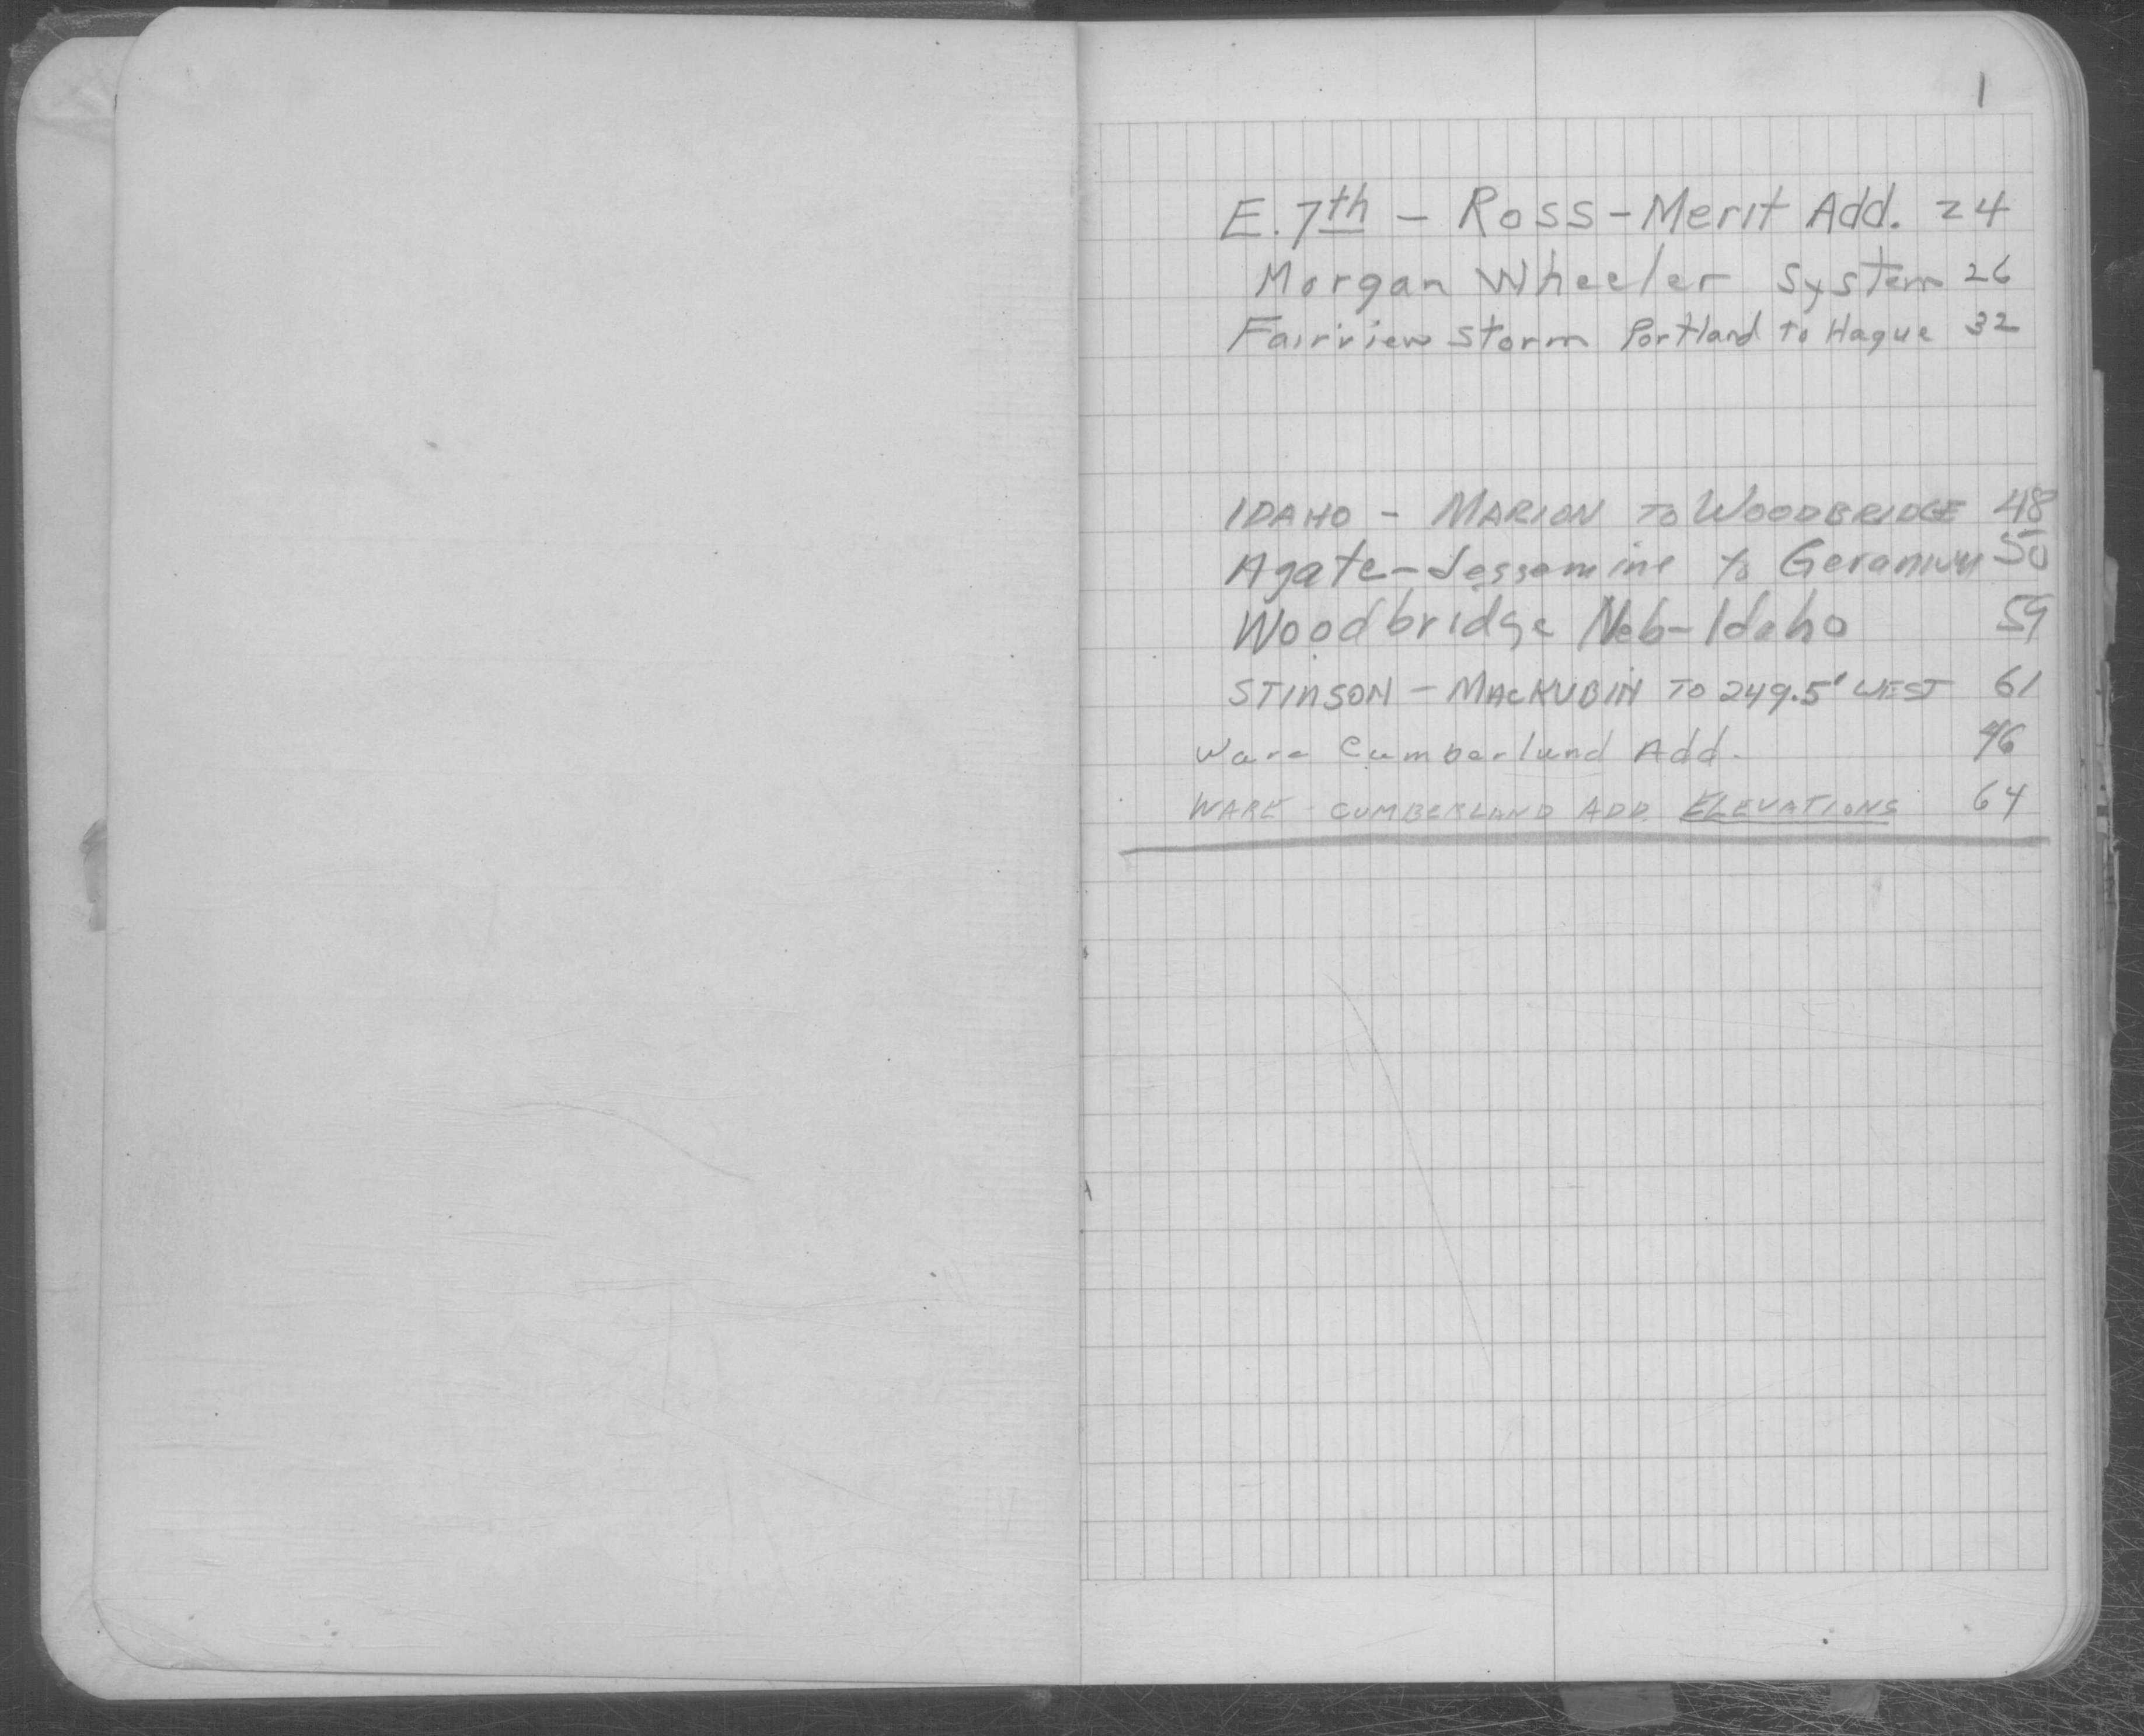 1
E. 7th - Ross-Merit Add. 24
Morgan Wheeler System 26
Fairview Storm Portland to Hague 32
IDAHO - MARION TO WOODBRIDGE 48
Agate-Jessamine to Geranium 50
Woodbridge Neb-Idaho 59
STINSON - MACKUBIN TO 249.5' WEST 61
Ware Cumberlund Add.
WARE - CUMBERLAND ADD. ELEVATIONS 64